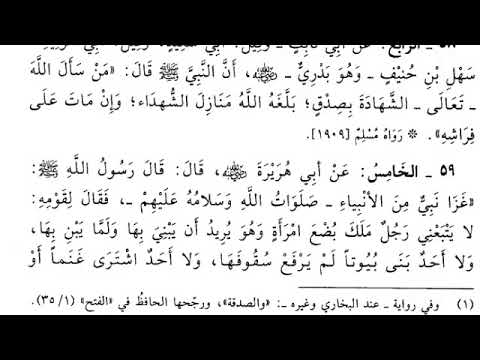 الرابع: عن أبي ثابت ـ وقيل: أبي
سَهْلِ بْنِ حُنَيْفٍ ـ وَهُوَ بَدْرِيٌّ ـ رضي الله عنه، أَنَّ النَّبِيَّ ﷺ قَالَ: «مَنْ سَأَلَ اللَّهَ
ـ تَعَالَى ـ الشَّهَادَةَ بِصِدْقٍ؛ بَلَّغَهُ اللَّهُ مَنَازِلَ الشُّهَدَاءِ؛ وَإِنْ مَاتَ عَلَى
فِرَاشِهِ». * رَوَاهُ مُسْلِمٌ [١٩٠٩].
٥٩ ـ الخَامِسُ: عَنْ أَبِي هُرَيْرَةَ رضي الله عنه، قَالَ: قَالَ رَسُولُ اللَّهِ ﷺ:
«غَزَا نَبِيٌّ مِنَ الأَنْبِيَاءِ ـ صَلَوَاتُ اللَّهِ وَسَلَامُهُ عَلَيْهِمْ ـ، فَقَالَ لِقَوْمِهِ:
لَا يَتْبَعْنِي رَجُلٌ مَلَكَ بُضْعَ امْرَأَةٍ وَهُوَ يُرِيدُ أَن يَبْنِيَ بِهَا وَلَمَّا يَبْنِ بِهَا،
وَلَا أَحَدٌ بَنَى بُيُوتاً لَمْ يَرْفَعْ سُقُوفَهَا، وَلَا أَحَدٌ اشْتَرَى غَنَماً أَوْ
(١) وفي رواية ـ عند البخاري وغيره ـ: «والصدقة»، ورجحها الحافظُ في «الفتح» (١/ ٣٥).